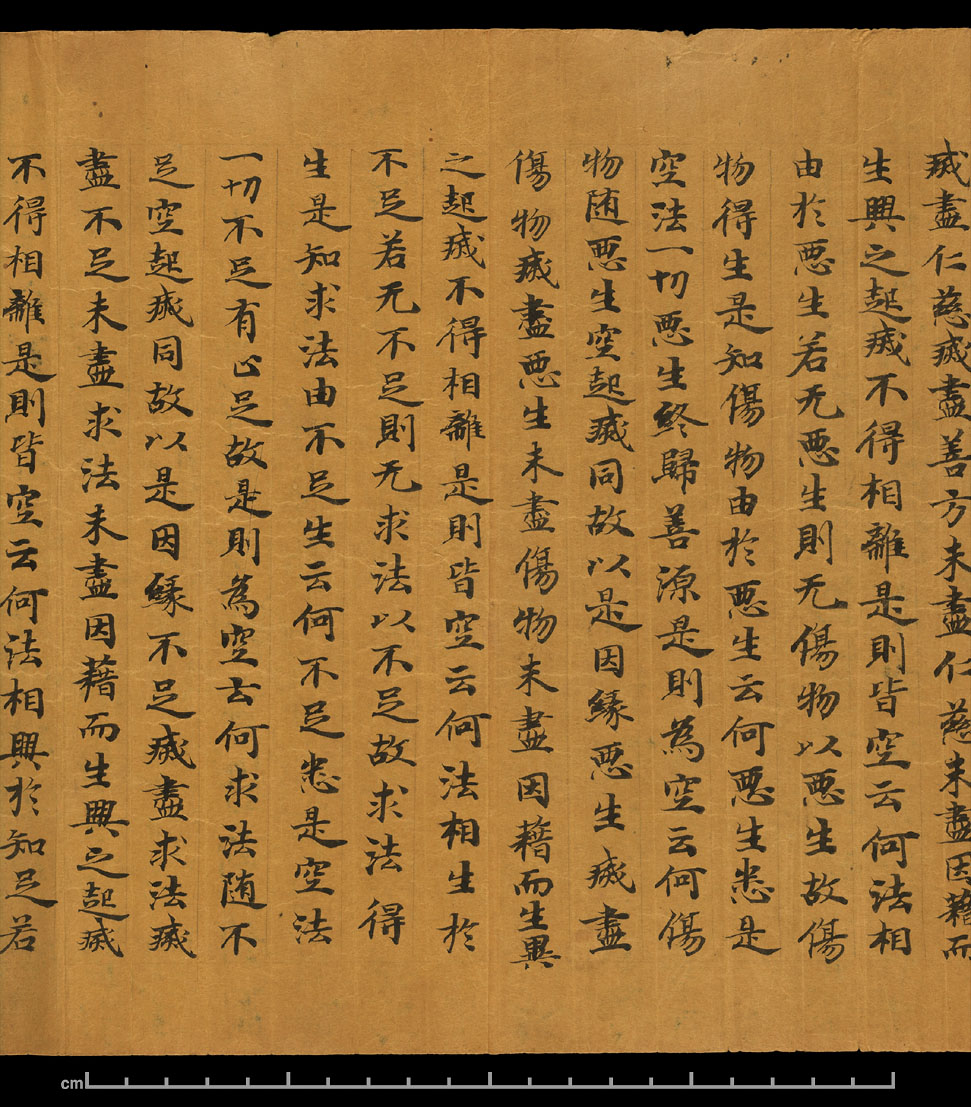 烕盡仁慈烕盡善方未盡仁慈未盡因藉而
生興之起烕不得相離是則皆空云何法相
由於悪生若无悪生則无傷物以悪生故傷
物得生是知傷物由於悪生云何悪生悉是
空法一切悪生終歸善源是則為空云何傷
物随悪生空起烕同故以是因緣悪生烕盡
傷物烕盡悪生未盡傷物未盡因藉而生興
之起烕不得相離是則皆空云何法相生於
不足若无不足則无求法以不足故求法得
生是知求法由不足生云何不足悉是空法
一切不足有止足故是則為空云何求法随不
足空起烕同故以是因緣不足烕盡求法烕
盡不足未盡求法未盡因藉而生興之起烕
不得相離是則皆空云何法相興於知足若
cm